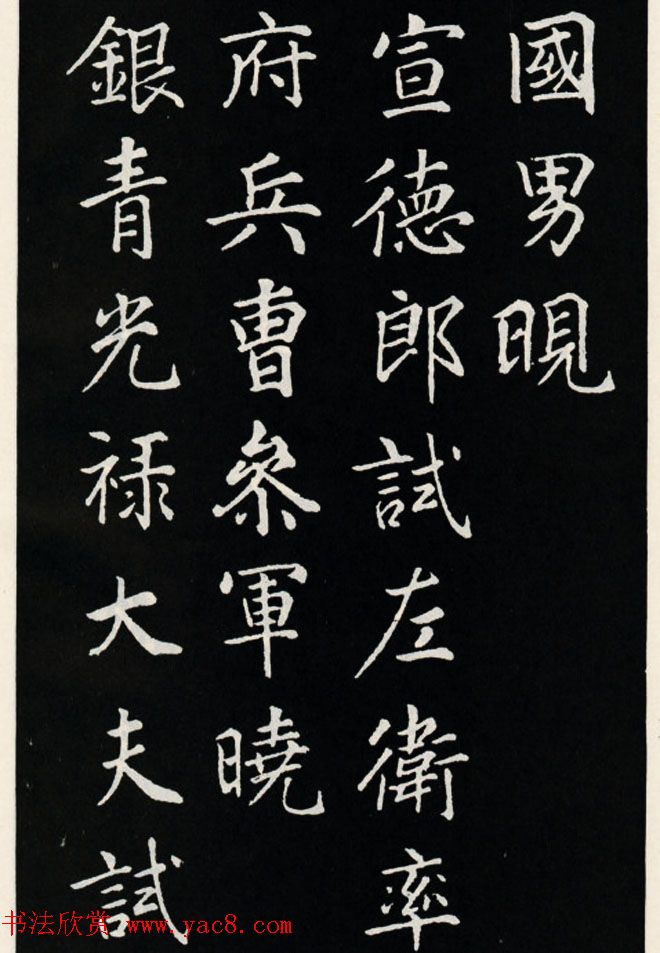 國男晛
宣德郎試左衛率
府兵曹叅軍曉
銀青光禄大夫試
书法欣赏 www.yac8.com